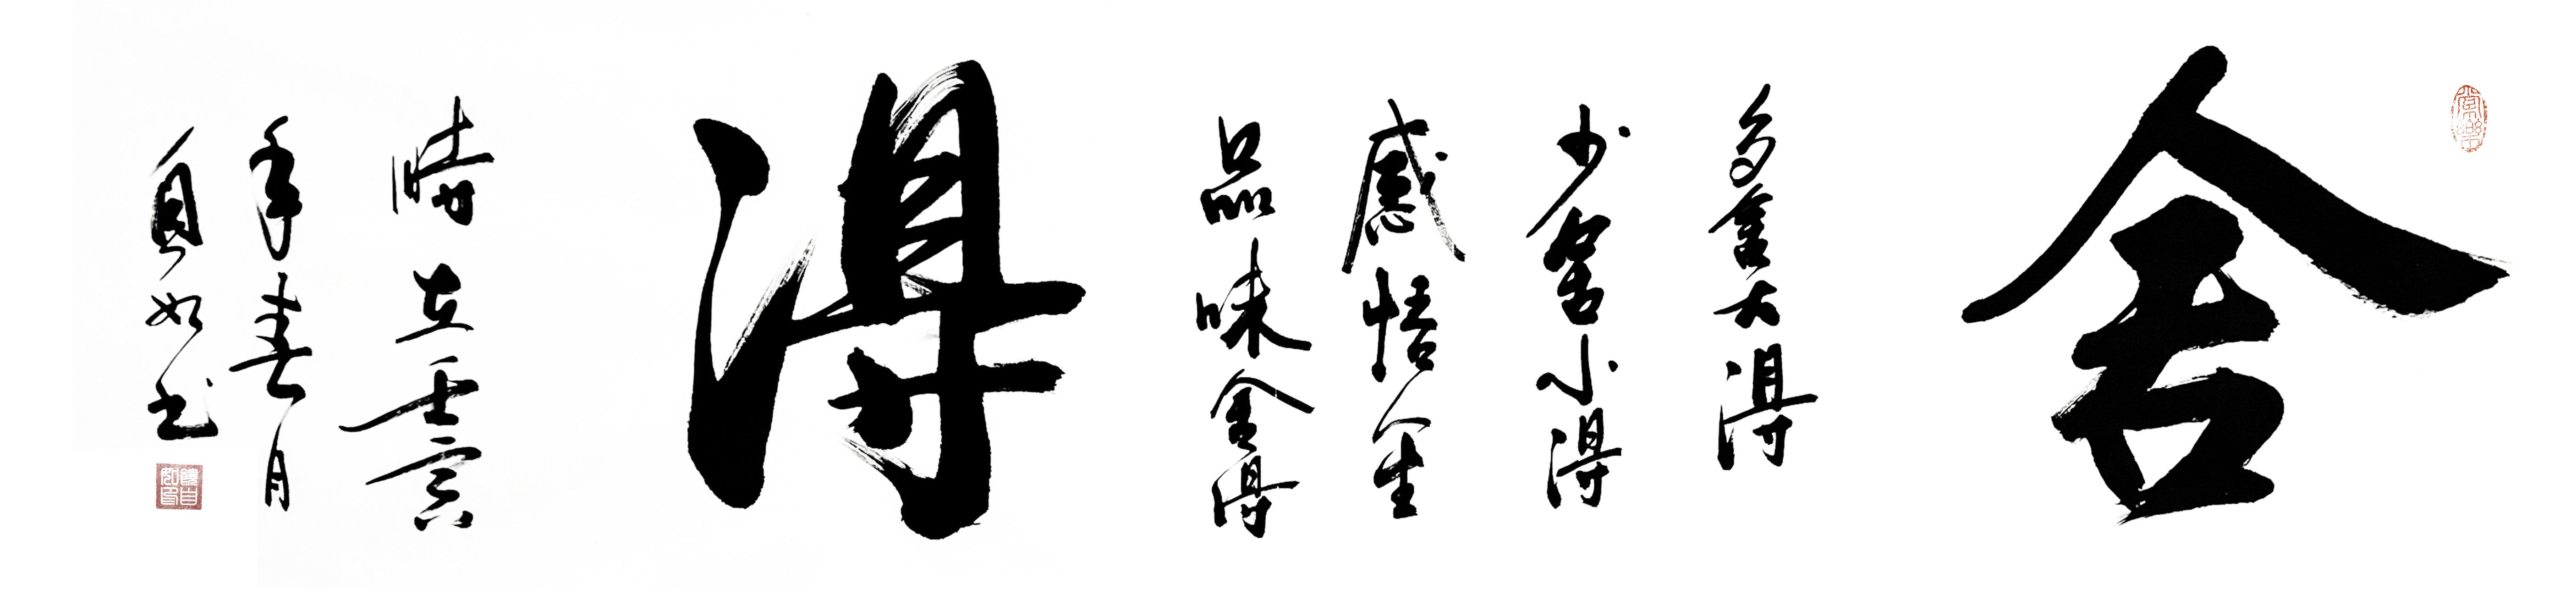 常樂
舍
多舍大得
少舍小得
感悟人生
品味舍得
得
時在壬寅
年春月
自如书